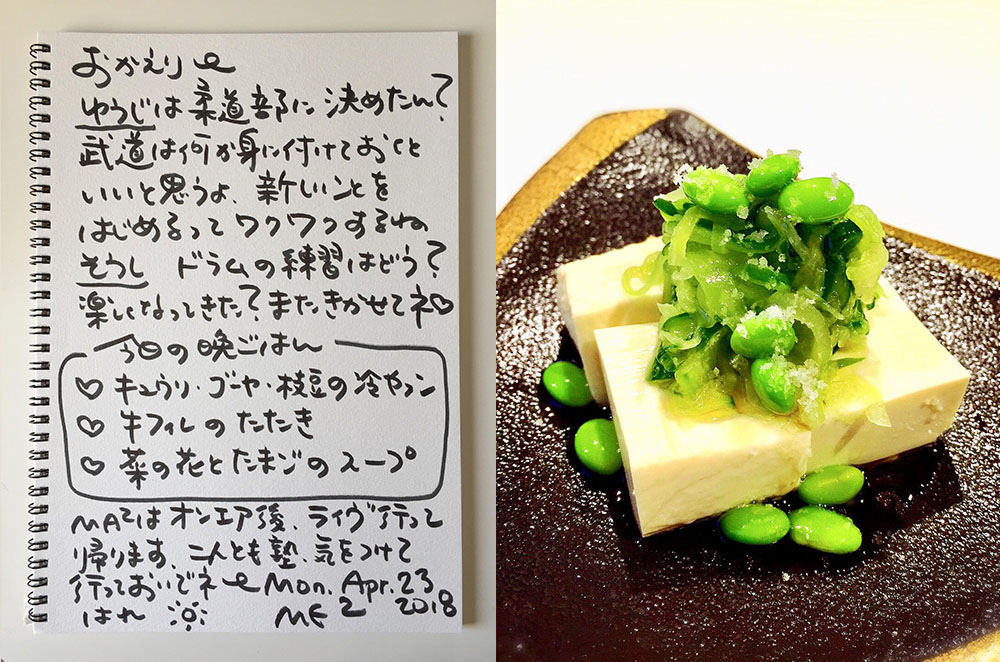 おかえりー
ゆうじは柔道部に決めたん?
武道は何か身に付けておくと
いいと思うよ、新しいことを
はじめるってワクワクするね
そうし ドラムの練習はどう?
楽しくなってきた?またきかせてネ♡
今日の晩ごはん
♡ キュウリ・ゴーヤ・枝豆の冷ヤッコ
♡ 牛フィレのたたき
♡ 菜の花とたまごのスープ
はオンエア後、ライヴ行って
帰ります、二人とも塾、気をつけて
行っておいでネー Mon. Apr. 23
はれ 2018